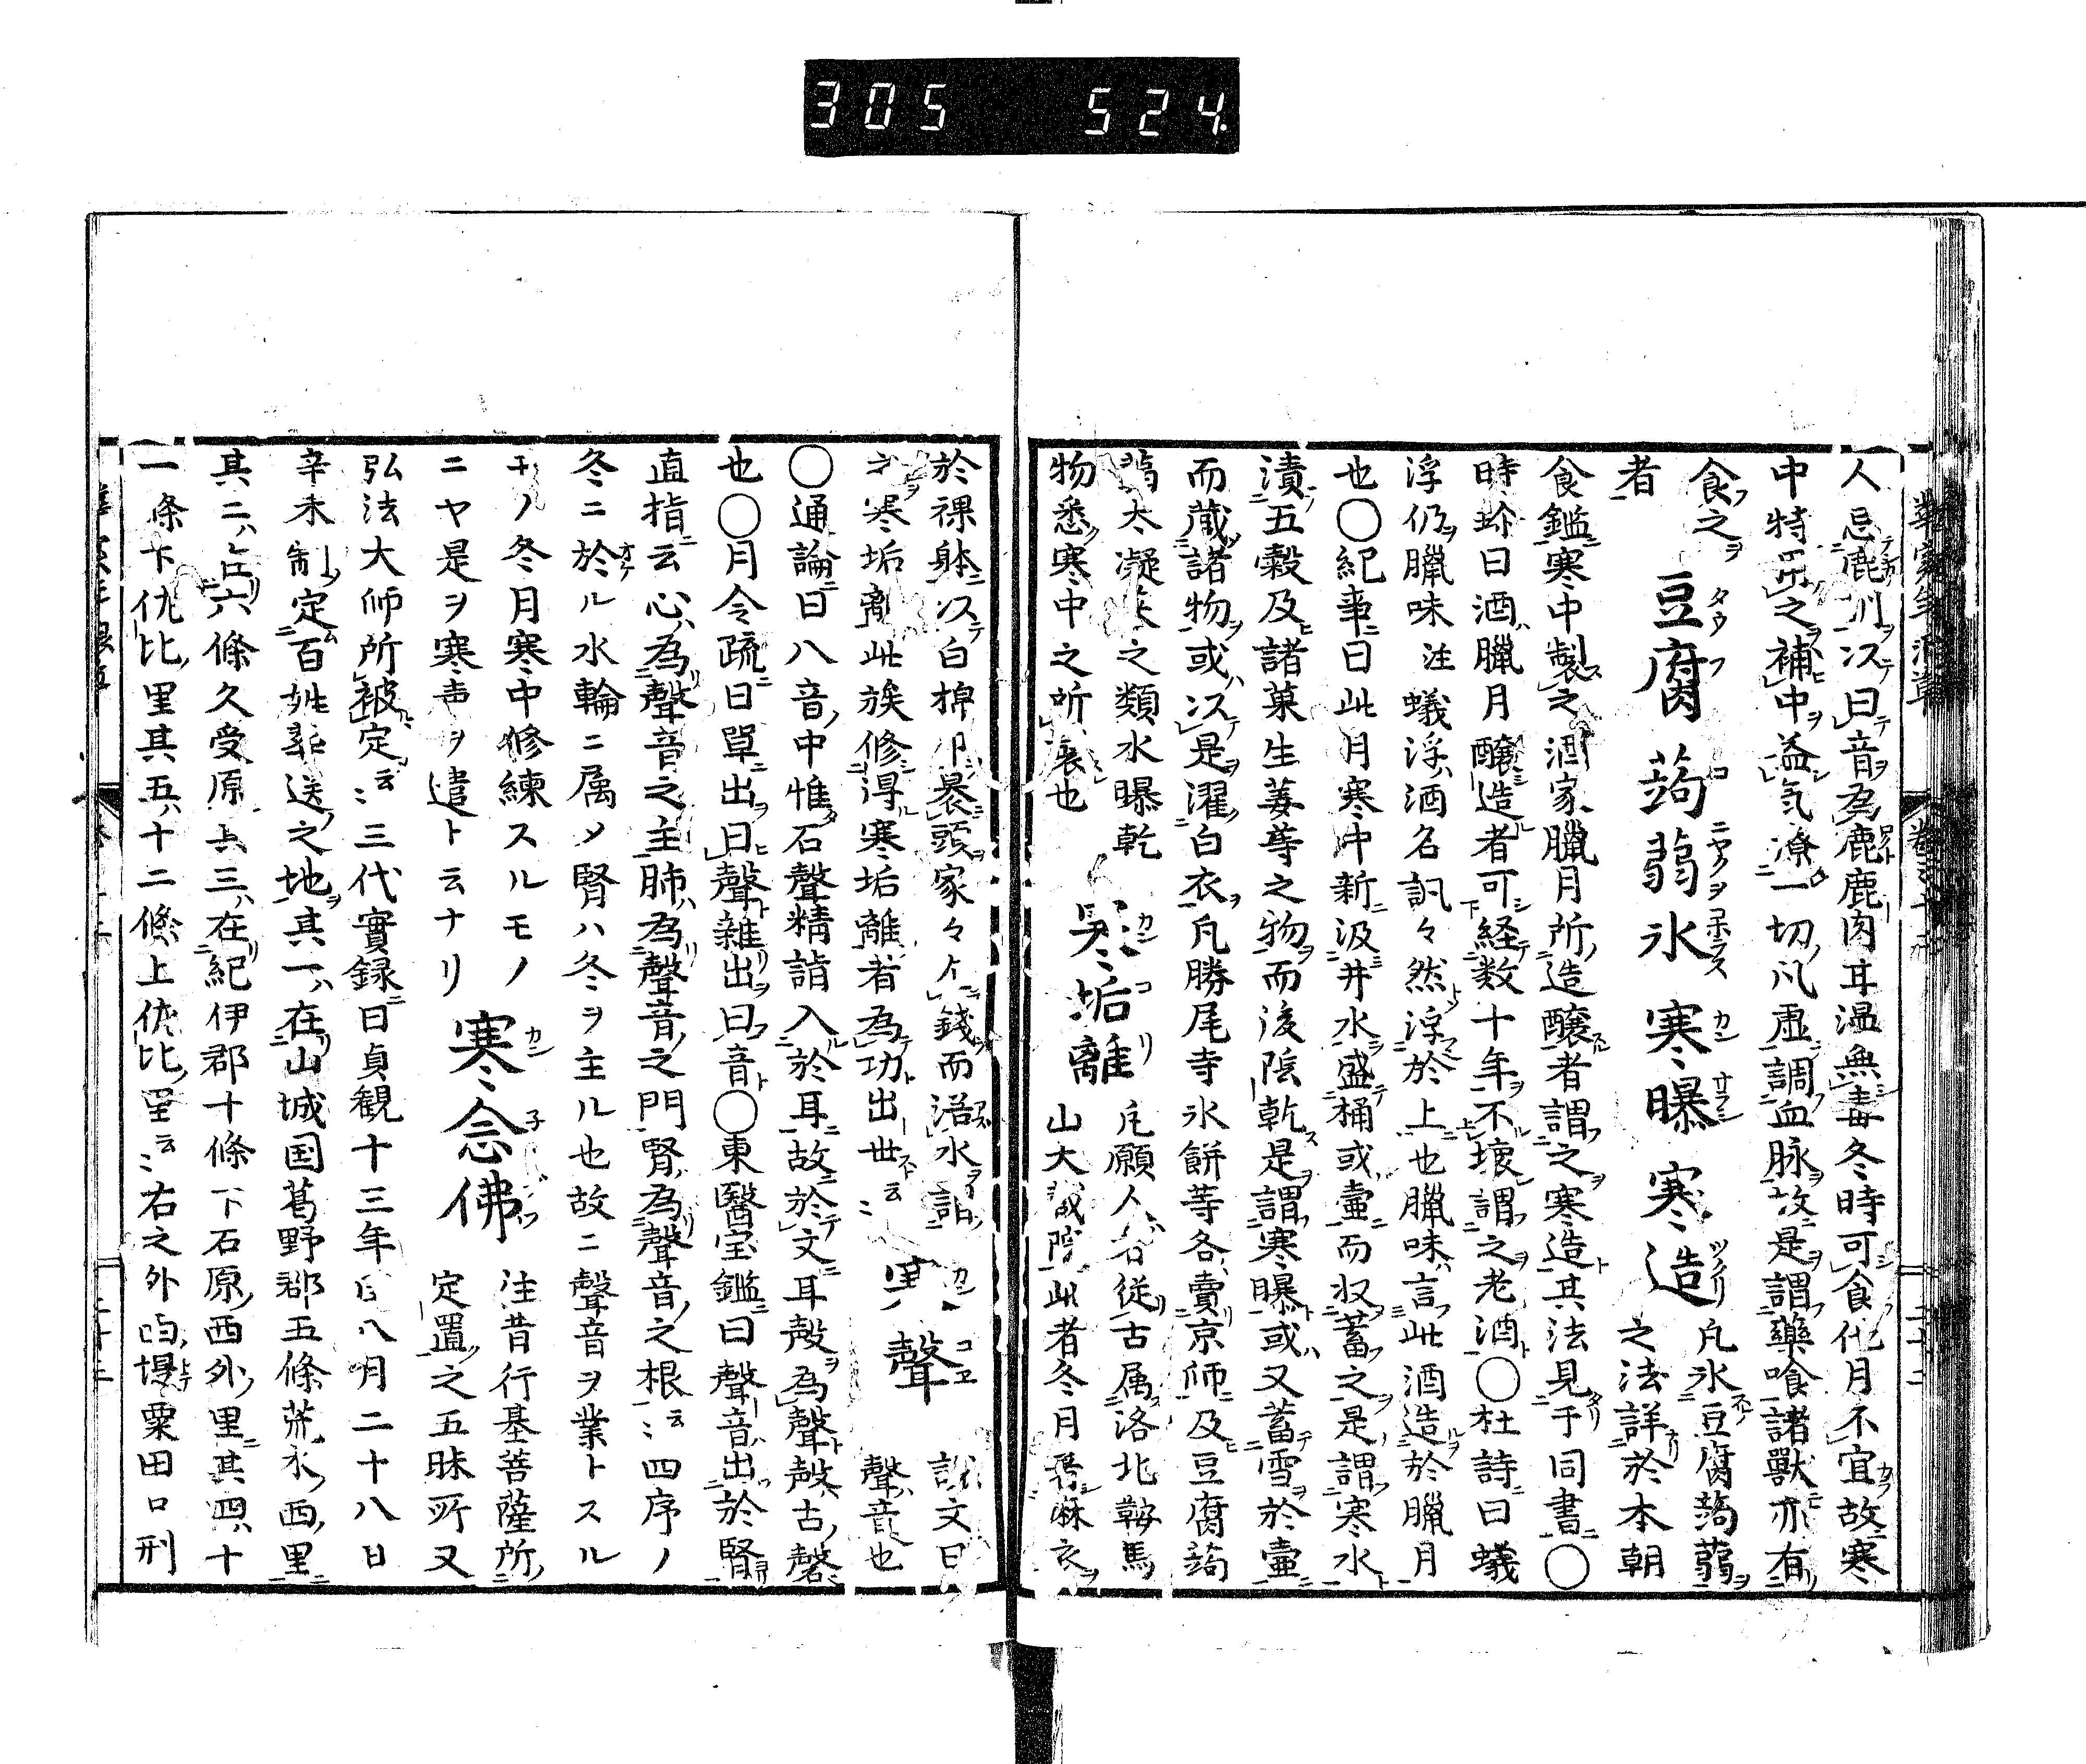 305 524
人忌鹿訓以曰音為鹿鹿肉耳温無毒冬時可食他月不宜故寒
中特〻之補中益気療一切凡虚調血脉故是謂藥喰諸獸亦有
食之
豆腐蒟蒻氷 寒曝 寒造
凡氷豆腐蒟蒻
者
之法詳於本朝
食鑑寒中製之酒家臘月所造醸者謂之寒造其法見于同書〇
時珍曰酒臘月醸造者可経数十年不壊謂之老酒〇杜詩曰蟻
浮仍臘味 注 蟻浮酒名訊々然浮於上也臘味言此酒造於臘月
也〇紀事曰此月寒中新汲井水盛桶或壷而収蓄之是謂寒水
漬五穀及諸菓生姜等之物而後陰乾是謂寒曝或又蓄雪於壷
而蔵諸物或以是濯白衣凡勝尾寺氷餅等各賣京師及豆腐蒟
蒻太凝菜之類水曝乾
寒垢離
凡願人者従古属洛北鞍馬
物悉寒中之所製也
山大蔵院此者冬月著麻衣
於裸躰以白
頭家々乞錢而浴水
寒垢離此族修得寒垢離者為功出世云〻
寒聲
説文曰
聲音也
〇通論曰八音中惟石聲精詣入於耳故於文耳殸為聲殸古磬
也〇月令疏曰單出曰聲雜出曰音〇東醫宝鑑曰聲音出於腎
直指云心為聲音之主肺為聲音之門腎為聲音之根云〻四序ノ
冬ニ於ル水輪ニ属メ腎ハ冬ヲ主ル也故ニ聲音ヲ業トスル
モノ冬月寒中修練スルモノ
ニヤ是ヲ寒声ヲ遣ト云ナリ
寒念佛
注昔行基菩薩所
定置之五昧所又
弘法大師所被定云〻三代實録曰貞観十三年閏八月二十八日
辛未制定百姓葬送之地其一在山城国葛野郡五條荒木西里
其二在六條久受原
里其三在紀伊郡十條下石原西外里其四十
一條下佐比里其五十二條上佐比里云〻右之外
粟田口刑